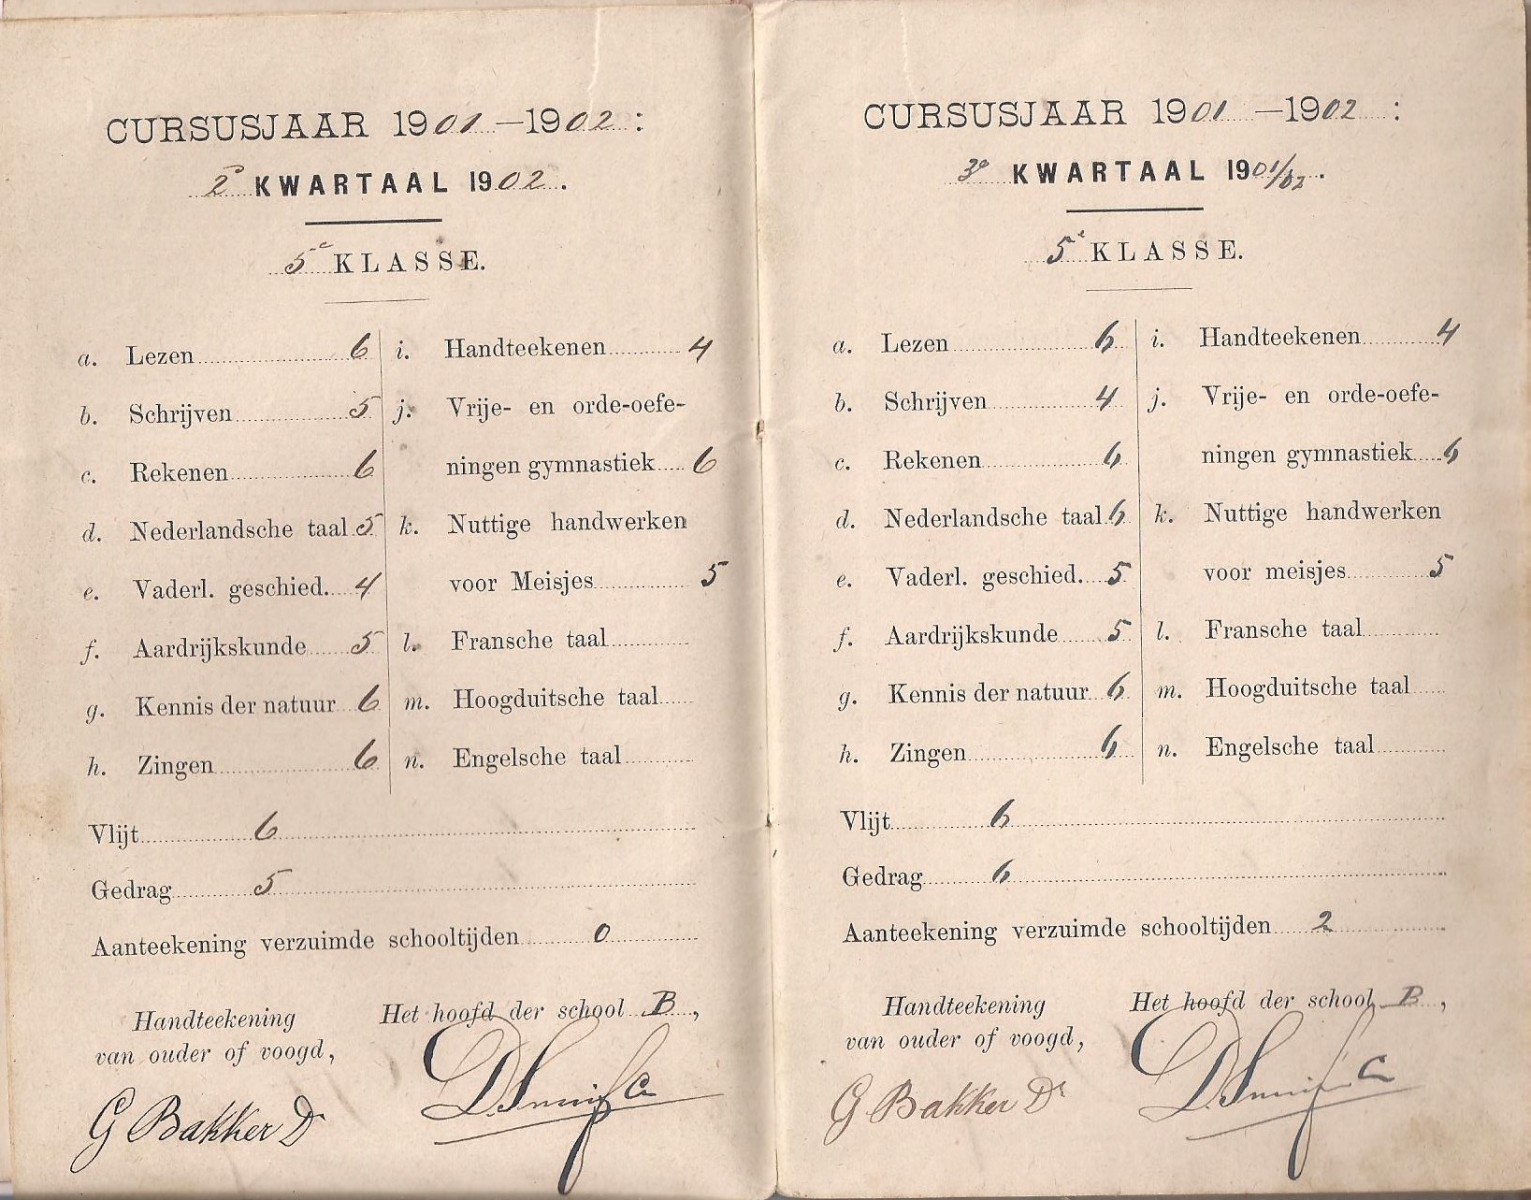 CURSUSJAAR 1901-1902:
2e KWARTAAL 1902.
5e KLASSE.
a. Lezen 6
b. Schrijven 5
c. Rekenen 6
d. Nederlandsche taal 5
e. Vaderl. geschied. 4
f. Aardrijkskunde 5
g. Kennis der natuur 6
h. Zingen 6
i. Handteekenen 4
j. Vrije- en orde-oefe-
ningen gymnastiek 6
k. Nuttige handwerken
voor Meisjes 5
l. Fransche taal
m. Hoogduitsche taal
n. Engelsche taal
Vlijt 6
Gedrag 5
Aanteekening verzuimde schooltijden 0
Handteekening
van ouder of voogd,
G Bakker Dr
Het hoofd der school B,
CURSUSJAAR 1901-1902:
3e KWARTAAL 1901/02.
5e KLASSE.
a. Lezen 6
b. Schrijven 4
c. Rekenen 6
d. Nederlandsche taal 6
e. Vaderl. geschied. 5
f. Aardrijkskunde 5
g. Kennis der natuur 6
h. Zingen 6
i. Handteekenen 4
j. Vrije- en orde-oefe-
ningen gymnastiek 6
k. Nuttige handwerken
voor meisjes 5
l. Fransche taal
m. Hoogduitsche taal
n. Engelsche taal
Vlijt 6
Gedrag 6
Aanteekening verzuimde schooltijden 2
Handteekening
van ouder of voogd,
G Bakker Dr
Het hoofd der school B,